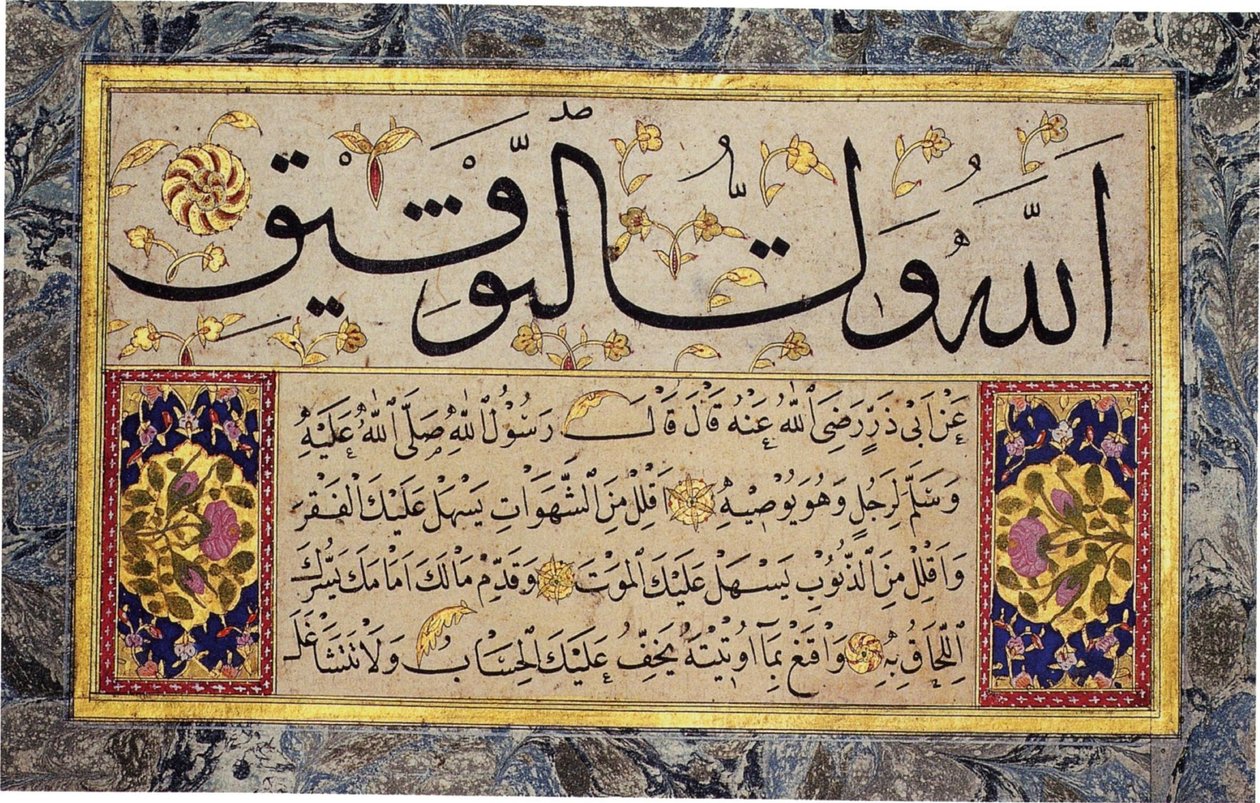 الله ولي التوفيق
عَنْ اَبِي ذَرٍّ رَضِيَ اللهُ عَنْهُ قَالَ قَالَ رَسُوْلُ اللهِ صَلَّى اللهُ عَلَيْهِ
وَسَلَّمَ لِرَجُلٍ وَهُوَ يُوْصِيْهِ اَقْلِلْ مِنَ الشَّهَوَاتِ يَسْهُلْ عَلَيْكَ الْفَقْرُ
وَاَقْلِلْ مِنَ الذُّنُوْبِ يَسْهُلْ عَلَيْكَ الْمَوْتُ وَقَدِّمْ مَالَكَ اَمَامَكَ يَسُرُّكَ
اللِّحَاقُ بِهِ وَاقْنَعْ بِمَا اُوْتِيْتَهُ يَخِفُّ عَلَيْكَ الْحِسَابُ وَلَا تَتَشَاغَلْ